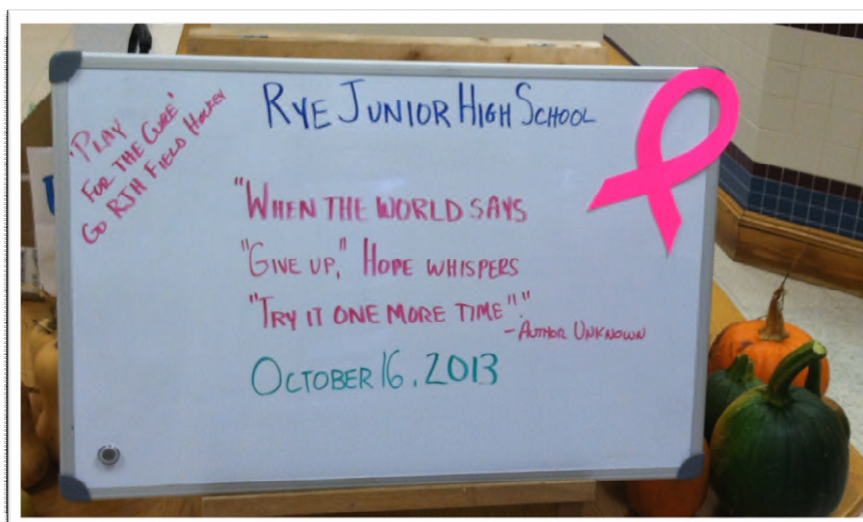 'PLAY
FOR THE CURE'
GO RJH FIELD HOCKEY
RYE JUNIOR HIGH SCHOOL
"WHEN THE WORLD SAYS
"GIVE UP," HOPE WHISPERS
"TRY IT ONE MORE TIME"."
- AUTHOR UNKNOWN
OCTOBER 16, 2013